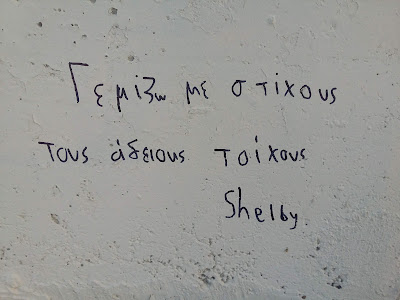 Γεμίζω με στίχους
τους άδειους τοίχους
Shelby.